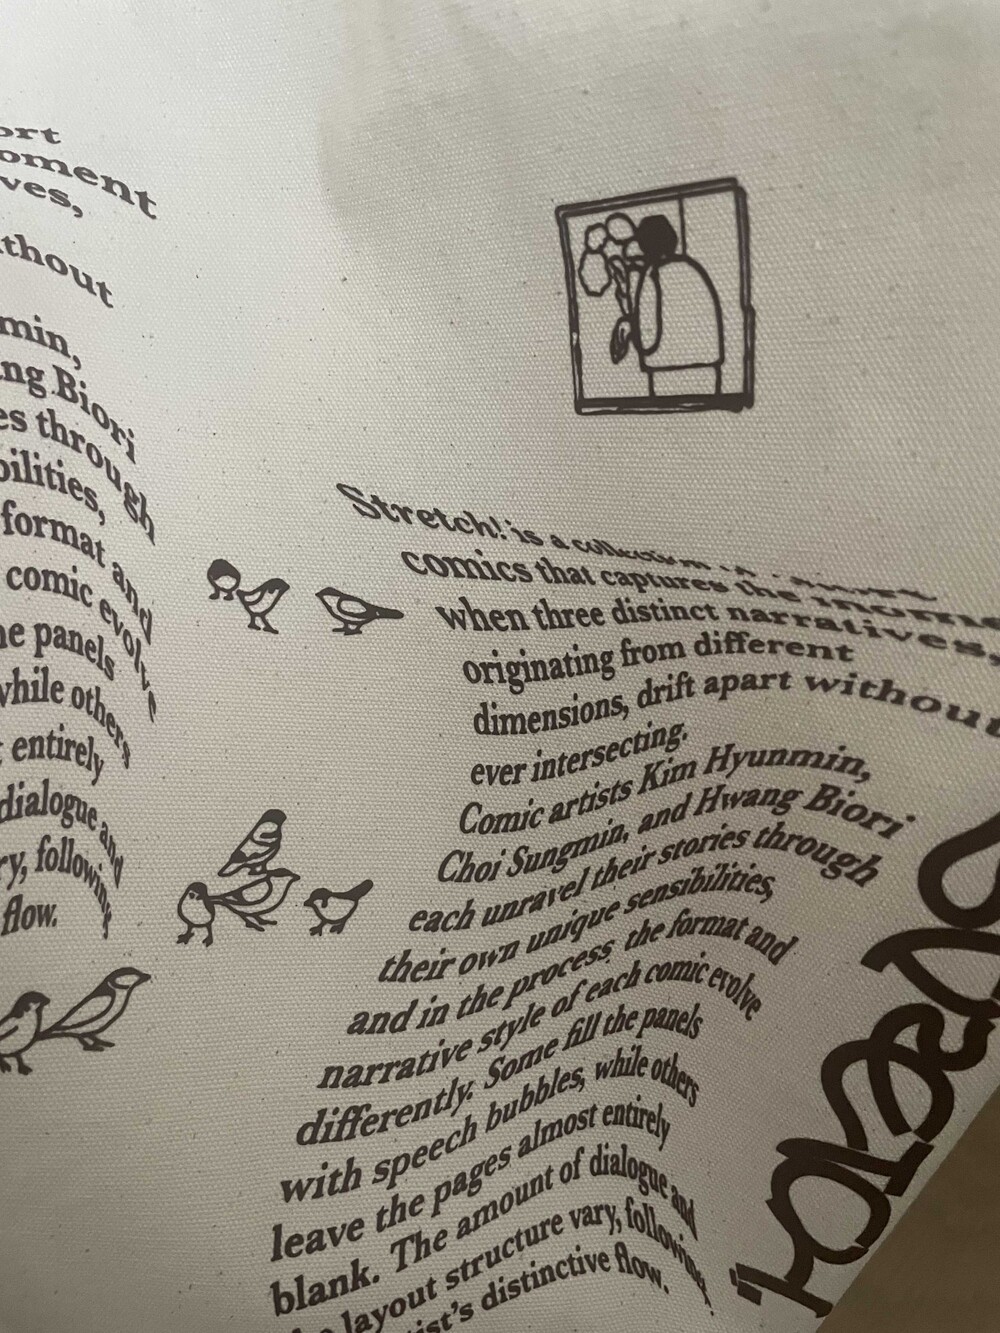 ort
oment
ves,
ithout
min,
ng Biori
es through
bilities,
format and
comic evolve
he panels
while others
entirely
dialogue and
ry, following
flow.
Stretch! is a collection
comics that captures the
when three distinct narratives,
originating from different
dimensions, drift apart without
ever intersecting.
Comic artists Kim Hyunmin,
Choi Sungmin, and Hwang Biori
each unravel their stories through
their own unique sensibilities,
and in the process, the format and
narrative style of each comic evolve
differently. Some fill the panels
with speech bubbles, while others
leave the pages almost entirely
blank. The amount of dialogue and
layout structure vary, following
ist's distinctive flow.